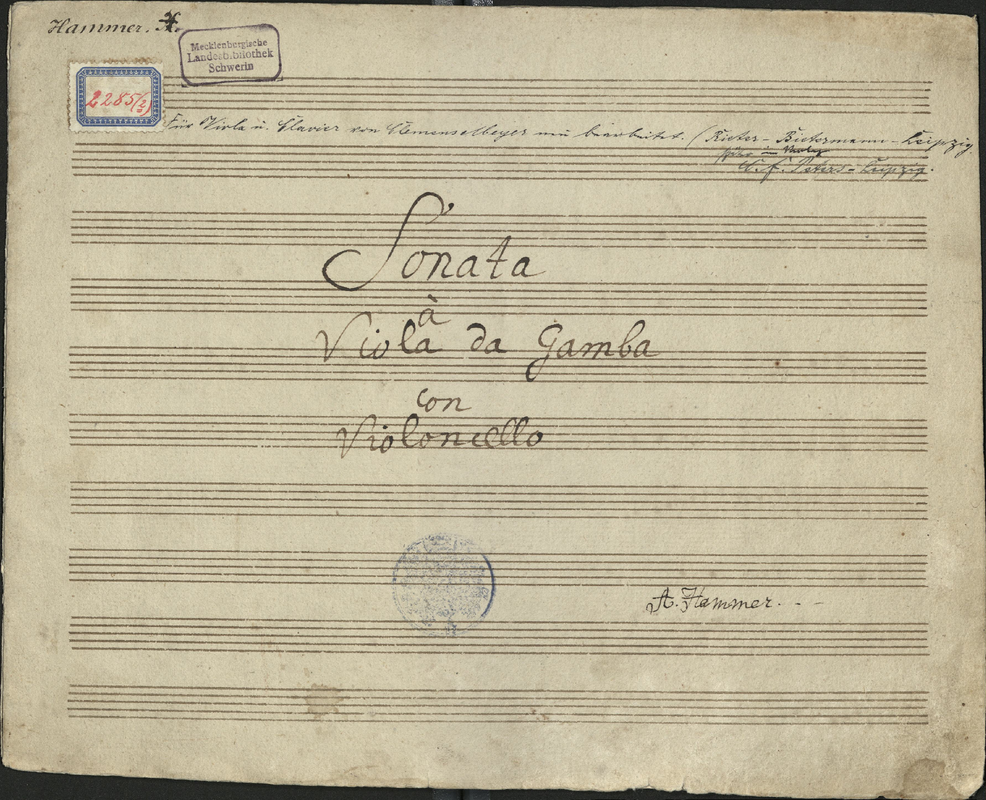 Hammer.
Mecklenbergische
Landesbibliothek
Schwerin
2285(2/0)
Für Viola u. Clavier von Clemens Meyer neu bearbeitet. (Rieter-Bietermann-Leipzig.
C. f. Peters-Leipzig.
Sonata
à
Viola da Gamba
con
Violoncello
A. Hammer.